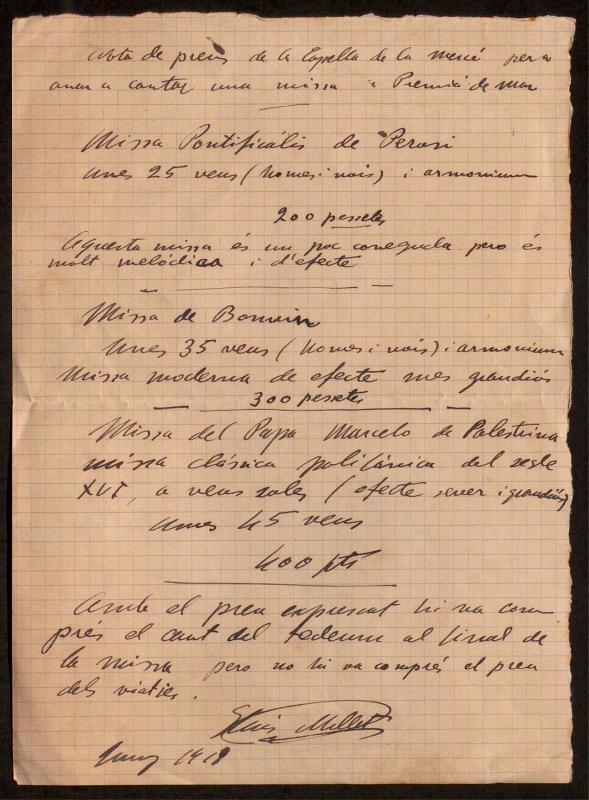 Nota de preus de la Capella de la Mercè per a
anar a cantar una missa a Premià de Mar
Missa Pontificalis de Perosi
Unes 25 veus (homes i nois) i armonium
200 pessetes
Aquesta missa és un poc coneguda pero és
molt melódica i d'efecte
Missa de
Unes 35 veus (homes i nois) i armonium
Missa moderna de efecte mes grandiós
300 pessetes
Missa del Papa Marcelo de Palestrina
missa clásica polifónica del segle
XVI, a veus soles (efecte sever i grandiós)
Unes 45 veus
400 pts
Amb el preu expressat hi va com
prés el cant del tedeum al final de
la missa pero no hi va comprés el preu
dels viatjes.
Lluis Millet
Juny 1918